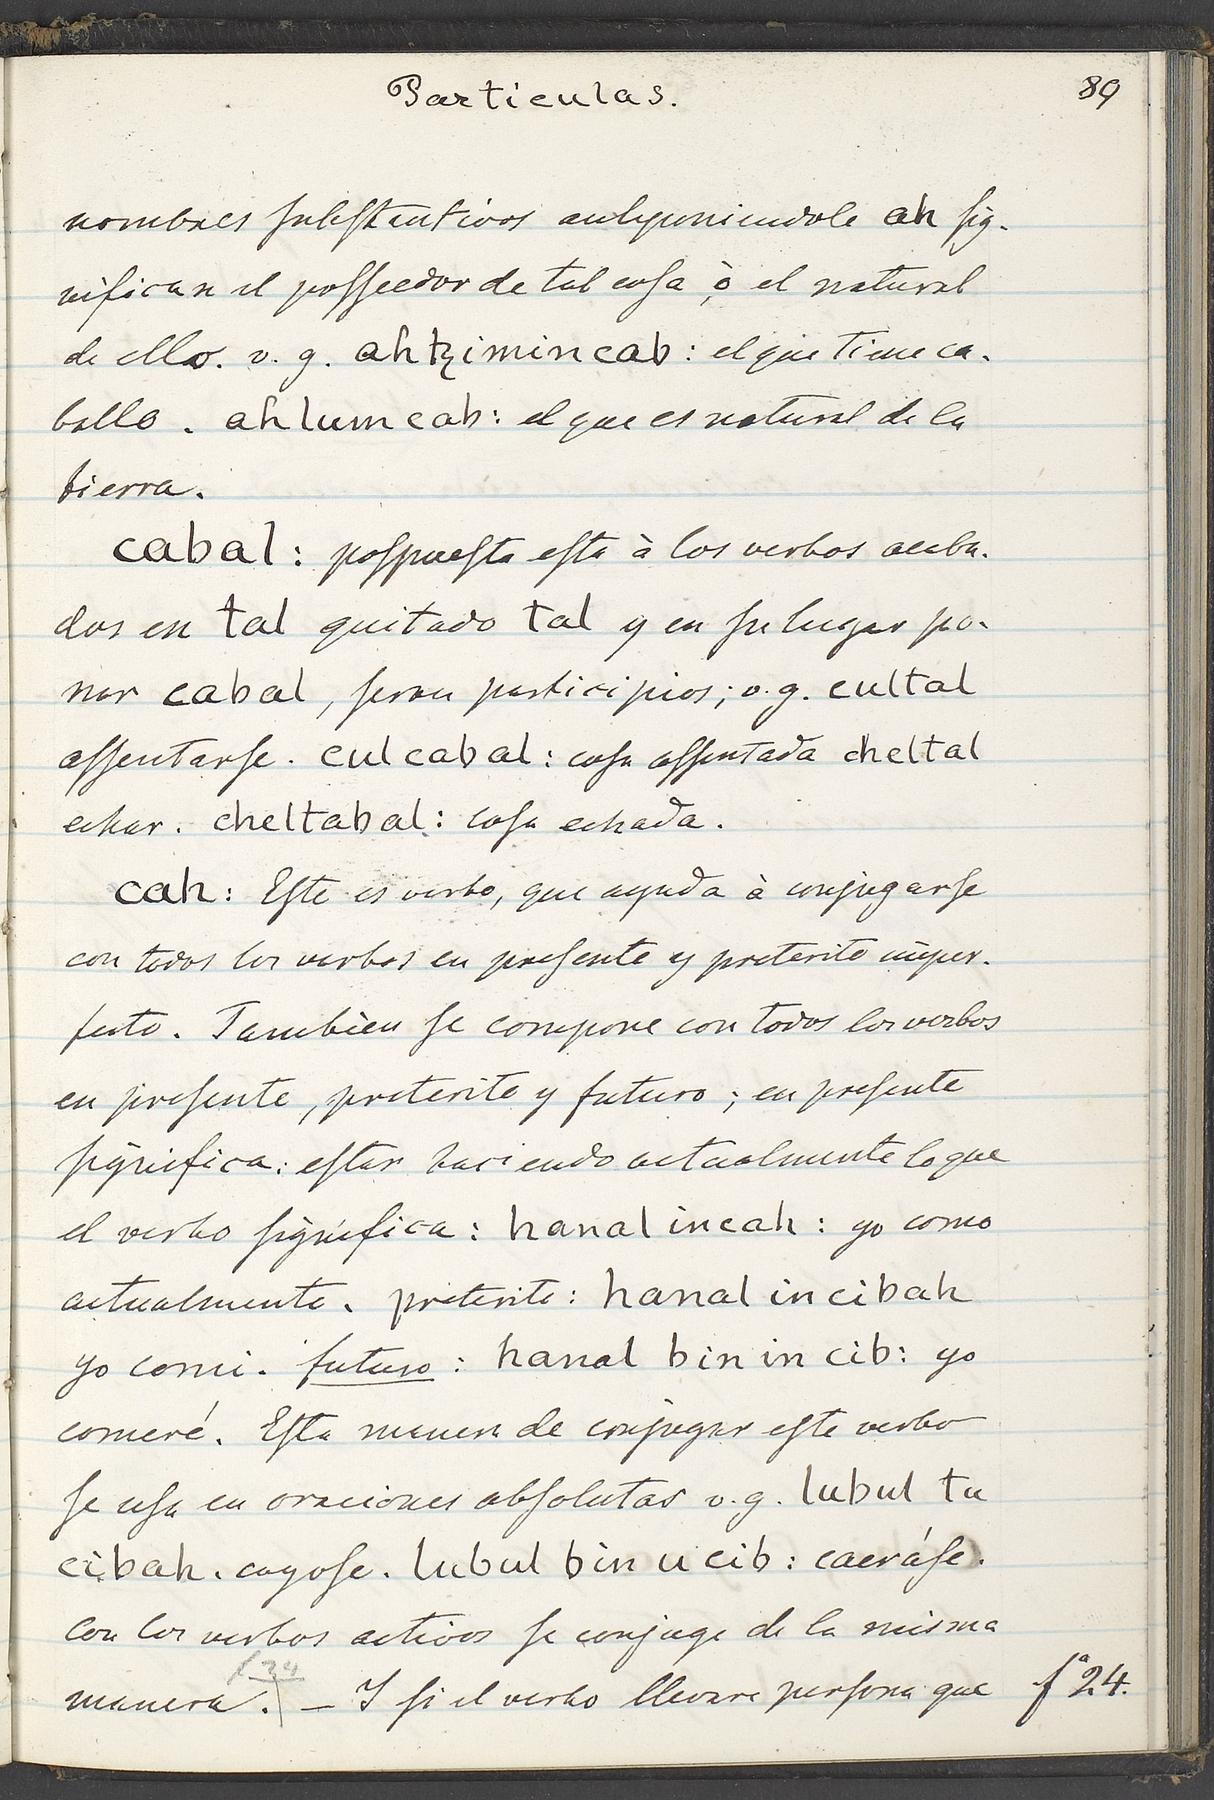 Particulas. 89
nombres substantivos anteponiendole ah sig-
nifican el possedor de tal cosa, ò el natural
de ella. v. g. ahtzimincab: el que tiene ca-
ballo. ahlumcab: el que es natural de la
tierra.
cabal: pospuesta esta à los verbos acaba-
dos en tal quitado tal y en su lugar po-
ner cabal, seran participios; v.g. cultal
assentarse. culcabal: cosa assentada cheltal
echar. cheltabal: cosa echada.
cah: Este es verbo, que ayuda à conjugarse
con todos los verbos en presente y preterito imper-
fecto. Tambien se compone con todos los verbos
en presente, preterito y futuro; en presente
significa: estar haciendo actualmente lo que
el verbo significa: hanal incah: yo como
actualmente. preterito: hanal in cibah
yo comi. futuro: hanal bin in cib: yo
comeré. Esta manera de conjugar este verbo
se usa en oraciones absolutas v.g. lubul tu
cibah. cayose. lubul bin u cib: caeráse.
Con los verbos activos se conjuga de la misma
f 24
manera. | — Y si el verbo llevare persona que fº 24.